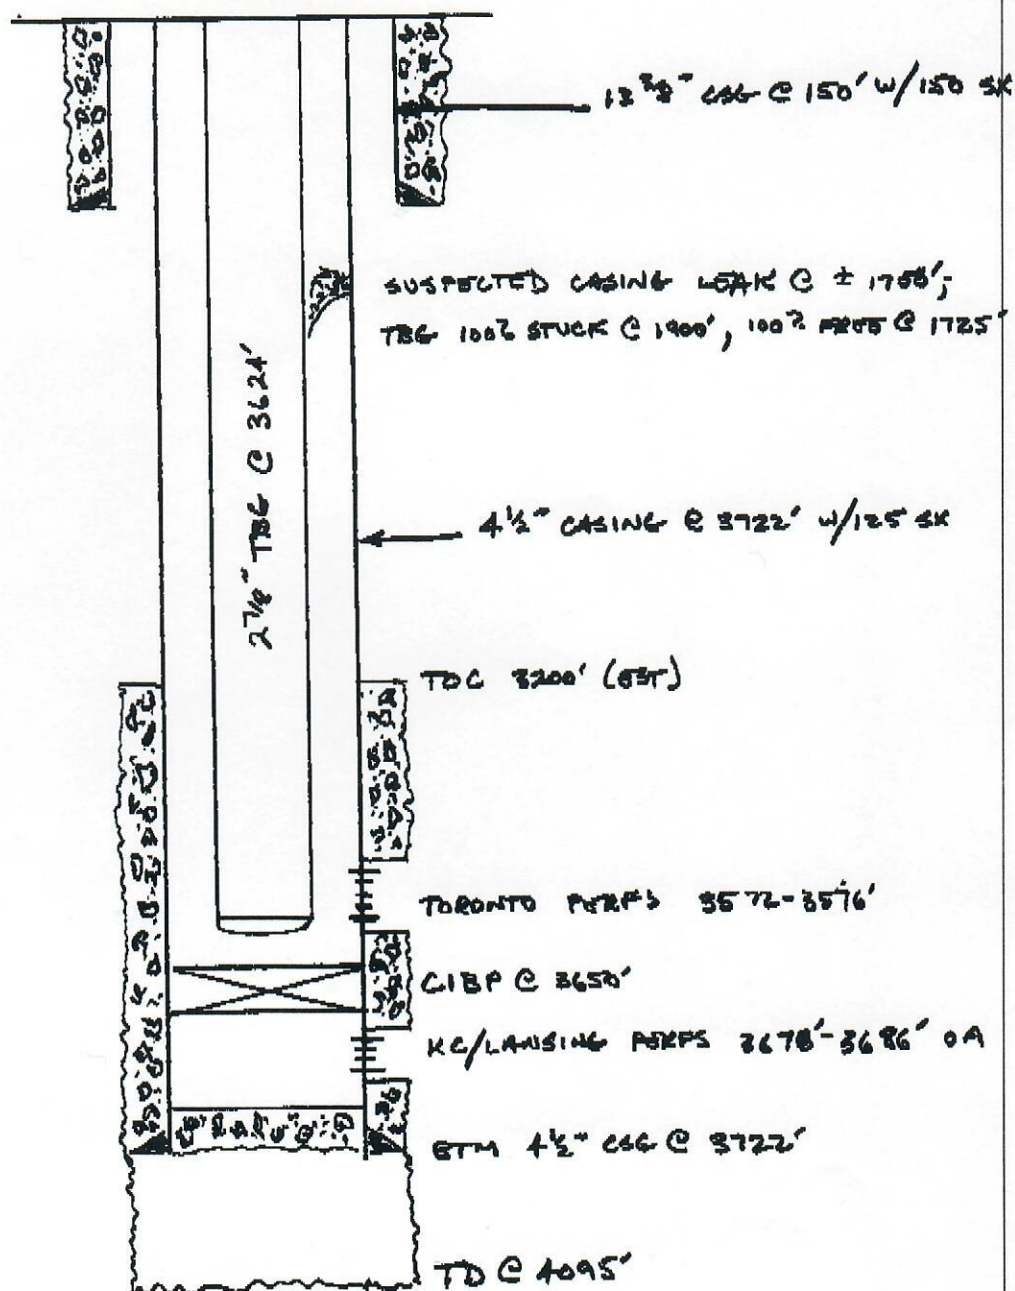 13 3/8" CSG @ 150' W/150 SX
SUSPECTED CASING LEAK @ ± 1755',
TBG 100% STUCK @ 1900', 100% FREE @ 1725'
2 7/8" TBG @ 3624'
4 1/2" CASING @ 3722' W/125 SX
TOC 3200' (EST)
TORONTO PERFS 3572-3576'
CIBP @ 3650'
KC/LANSING PERFS 3678'-3686' OA
BTM 4 1/2" CSG @ 3722'
TD @ 4095'